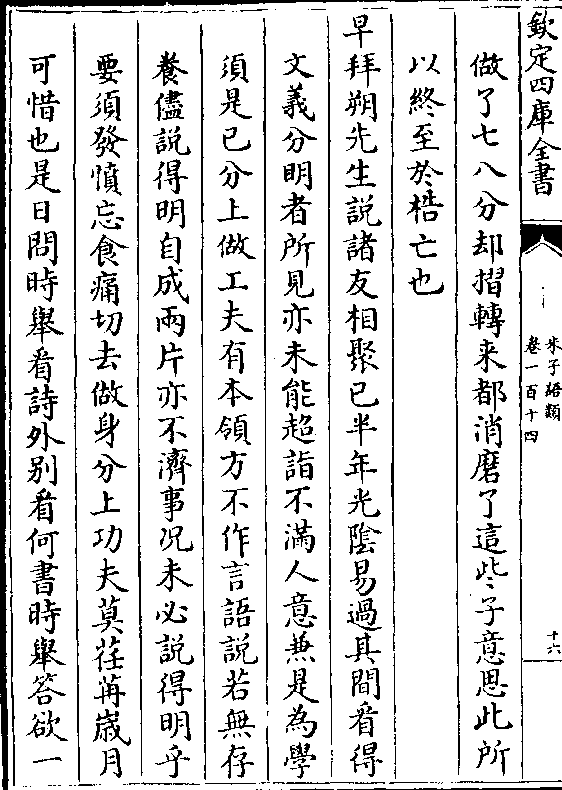 欽定四庫全書
朱子語類
卷一百十四
十六
做了七八分却摺轉来都消磨了這些子意思此所
以終至於梏亡也
早拜朔先生説諸友相聚已半年光陰易過其間看得
文義分明者所見亦未能超詣不滿人意兼是為學
須是已分上做工夫有本領方不作言語説若無存
養儘説得明自成兩片亦不濟事况未必説得明乎
要須發憤忘食痛切去做身分上功夫莫荏苒嵗月
可惜也是日問時舉看詩外别看何書時舉答欲一